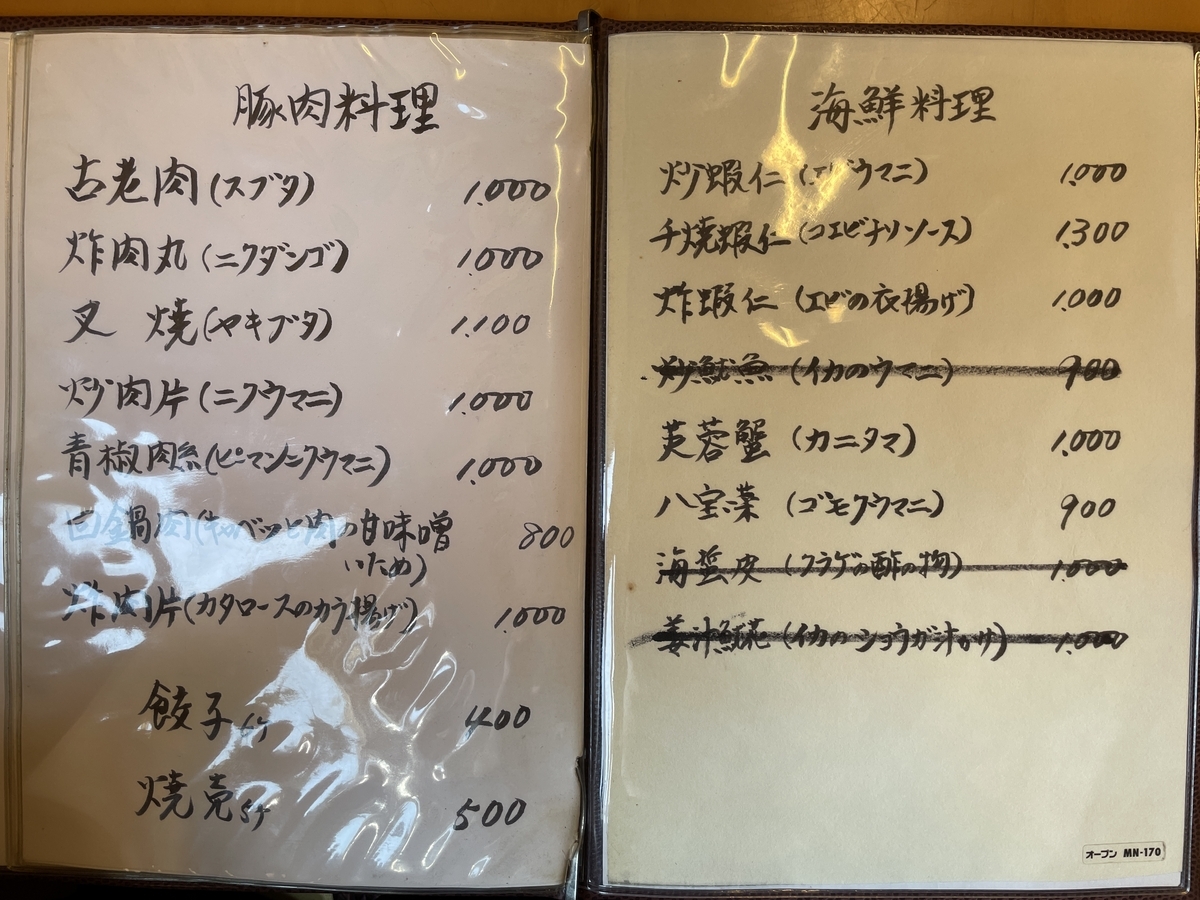 豚肉料理
古老肉(スブタ) 1.000
炸肉丸(ニクダンゴ) 1.000
叉 焼(ヤキブタ) 1.100
炒肉片(ニクウマニ) 1.000
青椒肉絲(ピーマンニクウマニ) 1.000
回鍋肉(キャベツと肉の甘味噌 800
いため)
炸肉片(カタロースのカラ揚げ) 1.000
餃子 400
焼売5ケ 500
海鮮料理
炒蝦仁(エビウマニ) 1.000
干焼蝦仁(コエビチリソース) 1.300
炸蝦仁(エビの衣揚げ) 1.000
炒魷魚(イカのウマニ) 900
芙蓉蟹(カニタマ) 1.000
八宝菜(ゴモクウマニ) 900
海蜇皮(クラゲの酢の物) 1.000
姜汁魷花(イカのショウガオカケ) 1.000
オープン MN-170